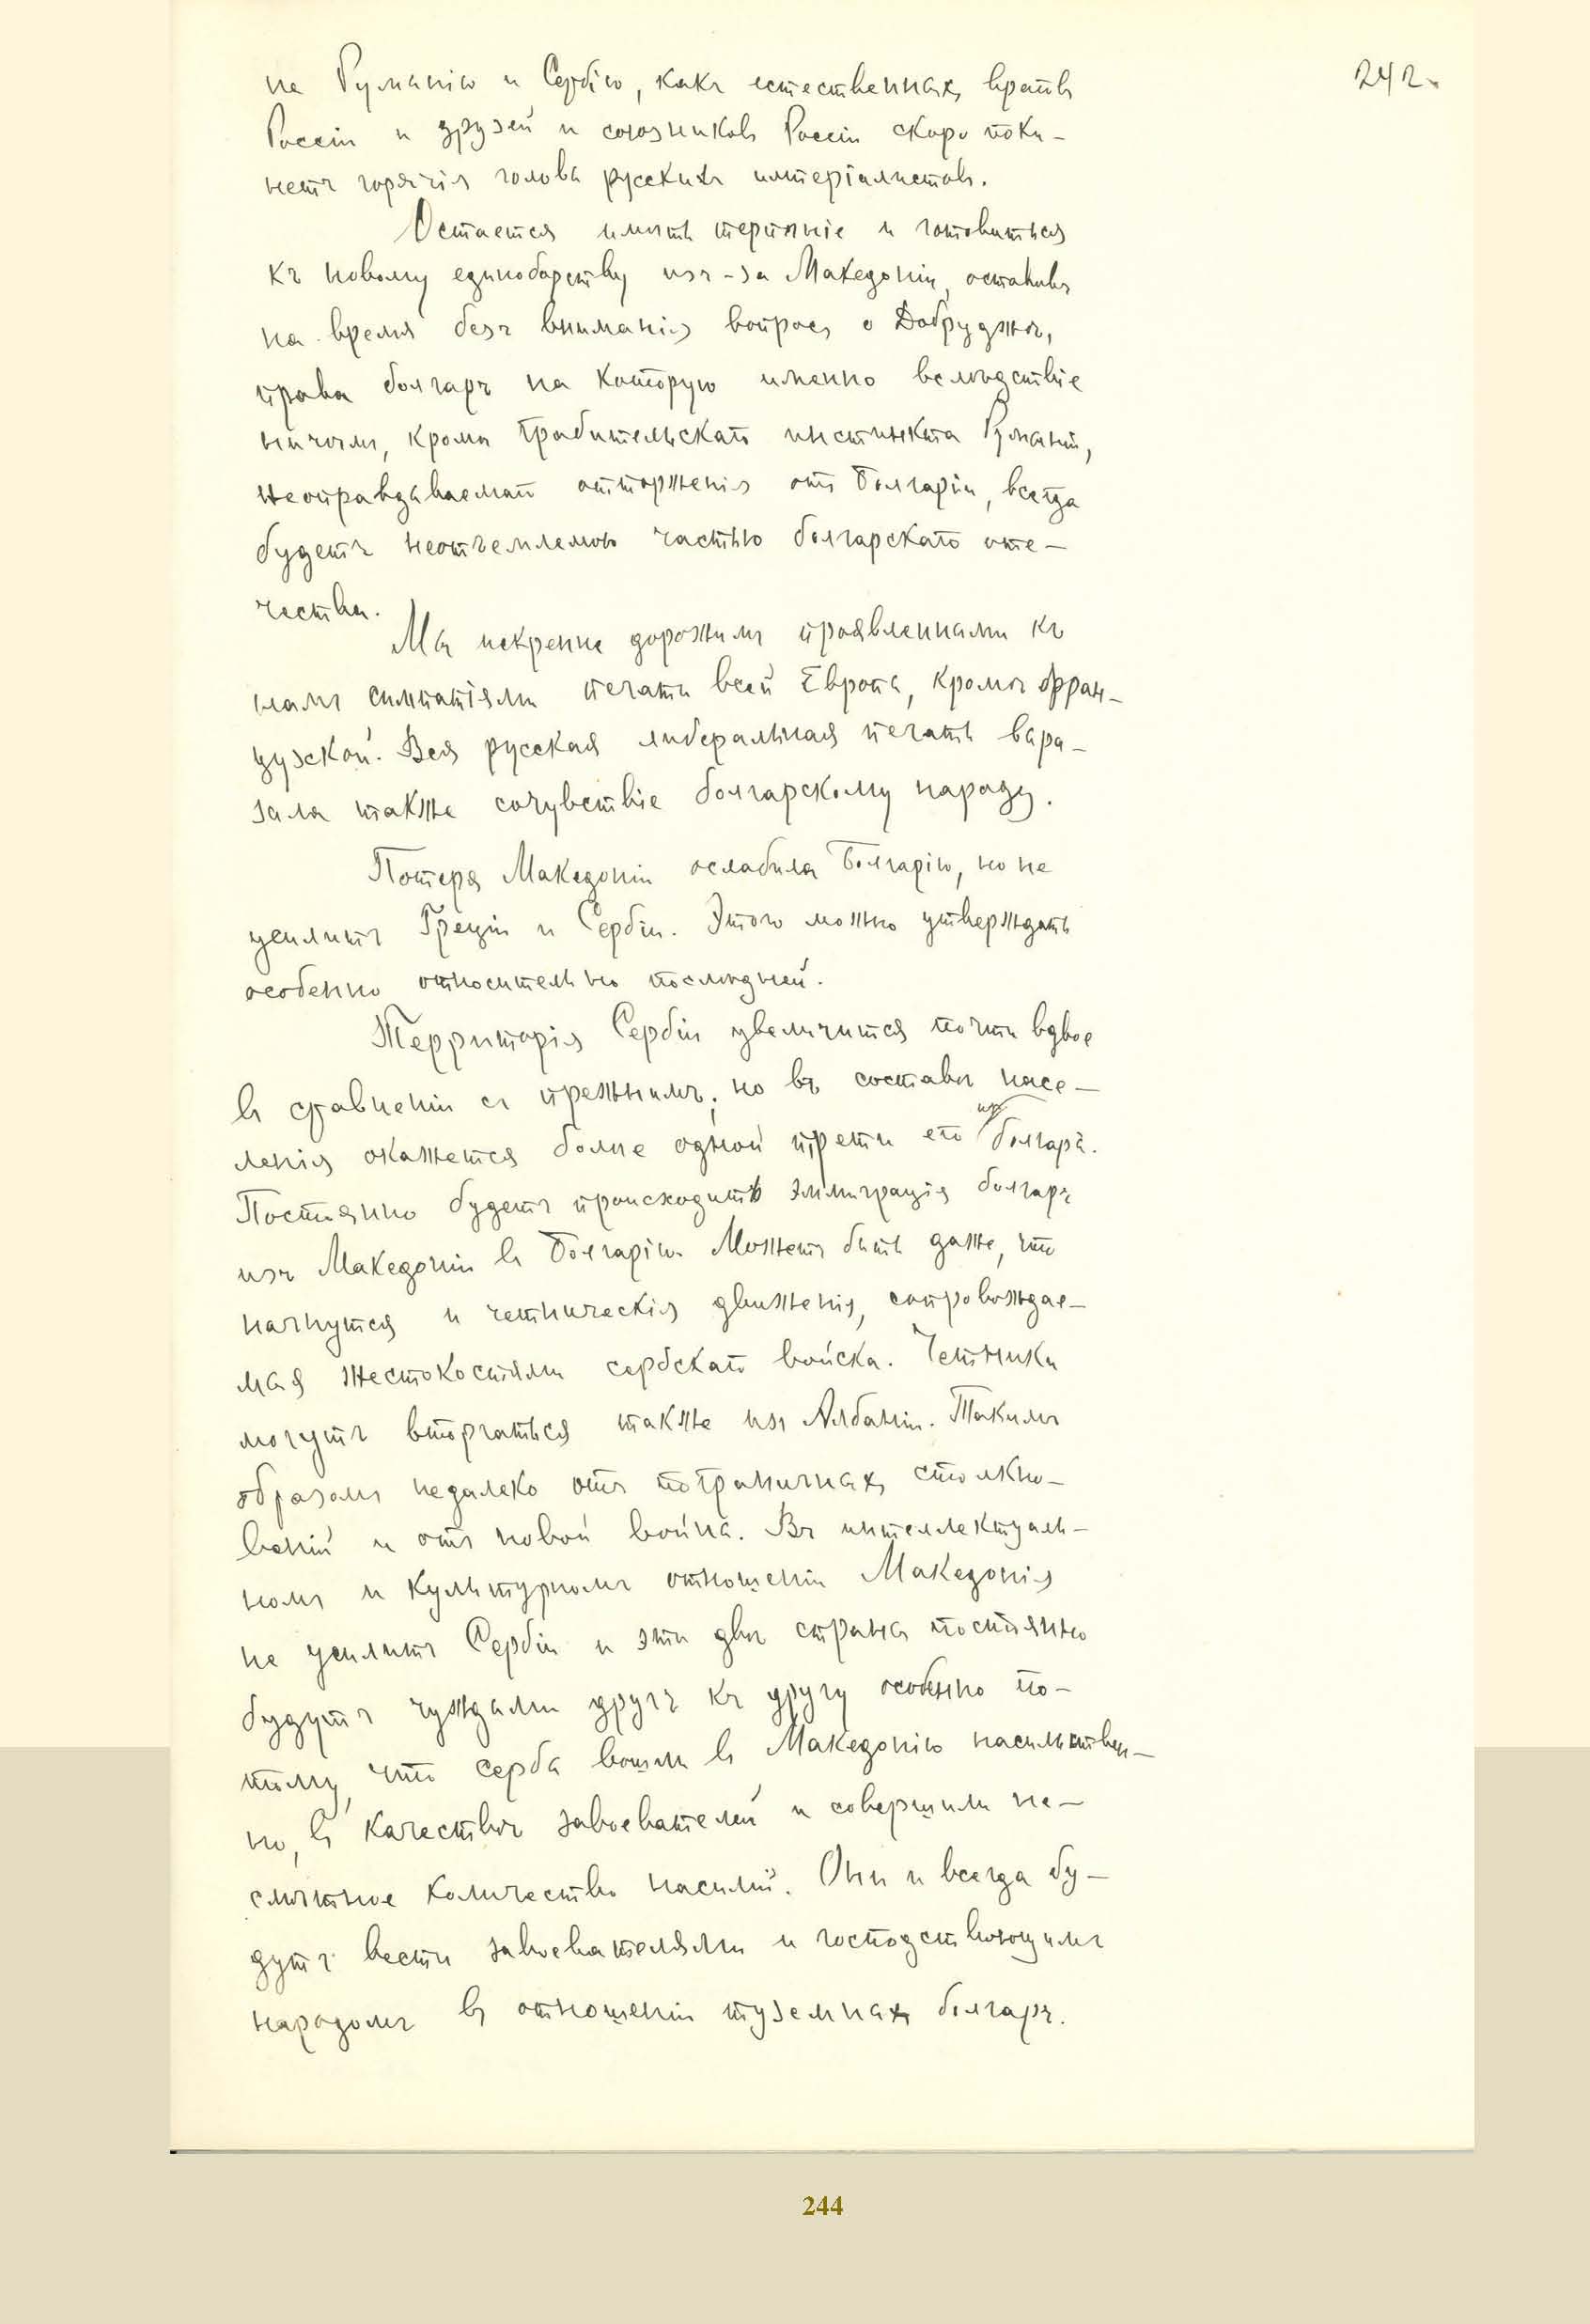 242.
на Румынію и Сербію, какъ естественныхъ враговъ
Россіи и друзей и союзниковъ Россіи скоро поки-
нетъ горячія головы русскихъ имперіалистовъ.
Остается имѣть терпѣніе и готовиться
къ новому единоборству изъ-за Македоніи, оставивъ
на время безъ вниманія вопросъ о Добруджѣ,
права болгаръ на которую именно вслѣдствіе
ничѣмъ, кромѣ грабительскаго инстинкта Румыніи,
неоправдываемаго отторженія отъ Болгаріи, всегда
будетъ неотъемлемою частью болгарскаго оте-
чества.
Мы искренне дорожимъ проявленными къ
намъ симпатіями печати всей Европы, кромѣ фран-
цузской. Вся русская либеральная печать выра-
зала также сочувствіе болгарскому народу.
Потеря Македоніи ослабила Болгарію, но не
усилитъ Греціи и Сербіи. Этого можно утверждать
особенно относительно послѣдней.
Территорія Сербіи увеличится почти вдвое
въ сравненіи съ прежнимъ; но въ составѣ насе-
ленія окажется болѣе одной трети его болгаръ.
Постоянно будетъ происходить эммиграція болгаръ
изъ Македоніи въ Болгарію. Можетъ быть даже, что
начнутся и четническія движенія, сопровождае-
мыя жестокостями сербскаго войска. Четники
могутъ вторгаться также изъ Албаніи. Такимъ
образомъ недалеко отъ пограничныхъ столкно-
веній и отъ новой войны. Въ интеллектуаль-
номъ и культурномъ отношеніи Македонія
не усилитъ Сербіи и эти двѣ страны постоянно
будутъ чуждыми другъ къ другу особенно по-
тому, что сербы вошли въ Македонію насильствен-
но, въ качествѣ завоевателей и совершили не-
смѣтное количество насилій. Они и всегда бу-
дутъ вести завоевателями и господствующимъ
народомъ въ отношеніи туземныхъ болгаръ.
244